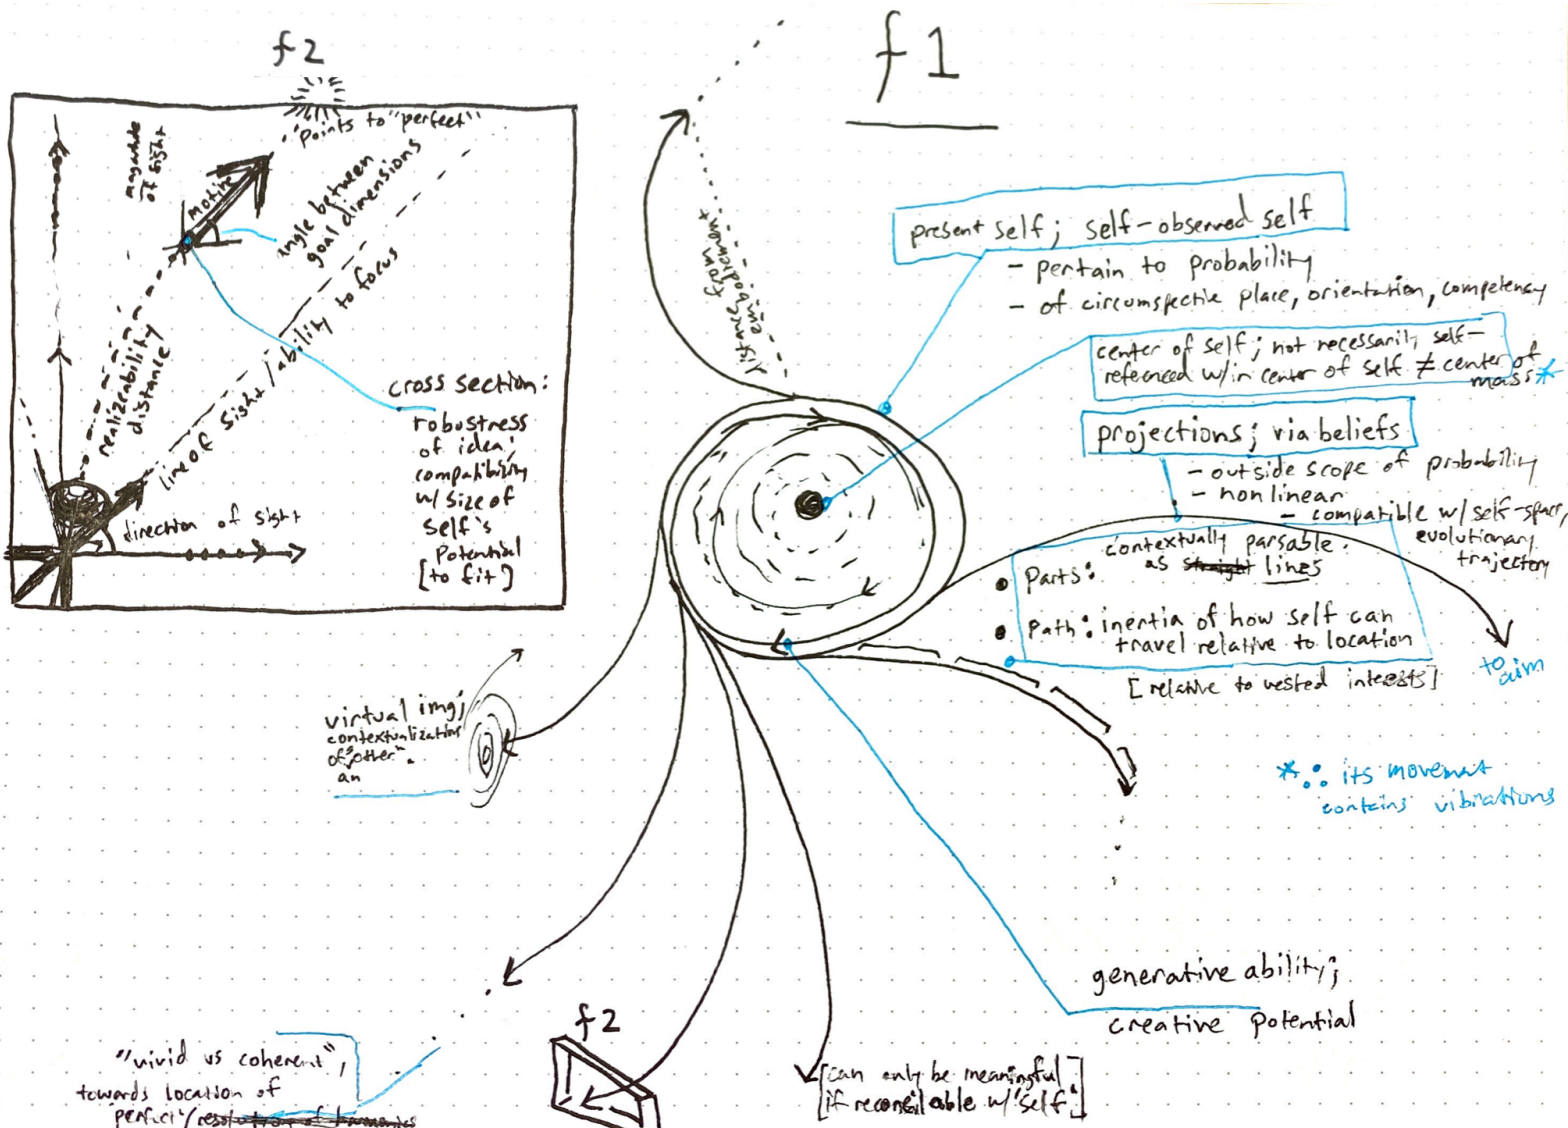 f2
magnitude
of sight
motive
points to "perfect"
angle between
goal dimensions
realizability
distance
line of sight / ability to focus
direction of sight
cross section:
robustness
of idea;
compatibility
w/ size of
self's
potential
[to fit]
f1
distance from
embodiment
present self; self-observed self
- pertain to probability
- of circumspective place, orientation, competency
center of self; not necessarily self-
referenced w/in center of self ≠ center of
mass*
projections; via beliefs
- outside scope of probability
- nonlinear
- compatible w/ self-space,
evolutionary
trajectory
• Parts: contextually parsable
as straight lines
• Path: inertia of how self can
travel relative to location
[relative to vested interests]
to
aim
*∴ its movement
contains vibrations
virtual img;
contextualizations
of "other".
an
generative ability;
creative potential
f2
[can only be meaningful
if reconcileable w/ 'self'.]
"vivid vs coherent",
towards location of
perfect / resolution of harmonics